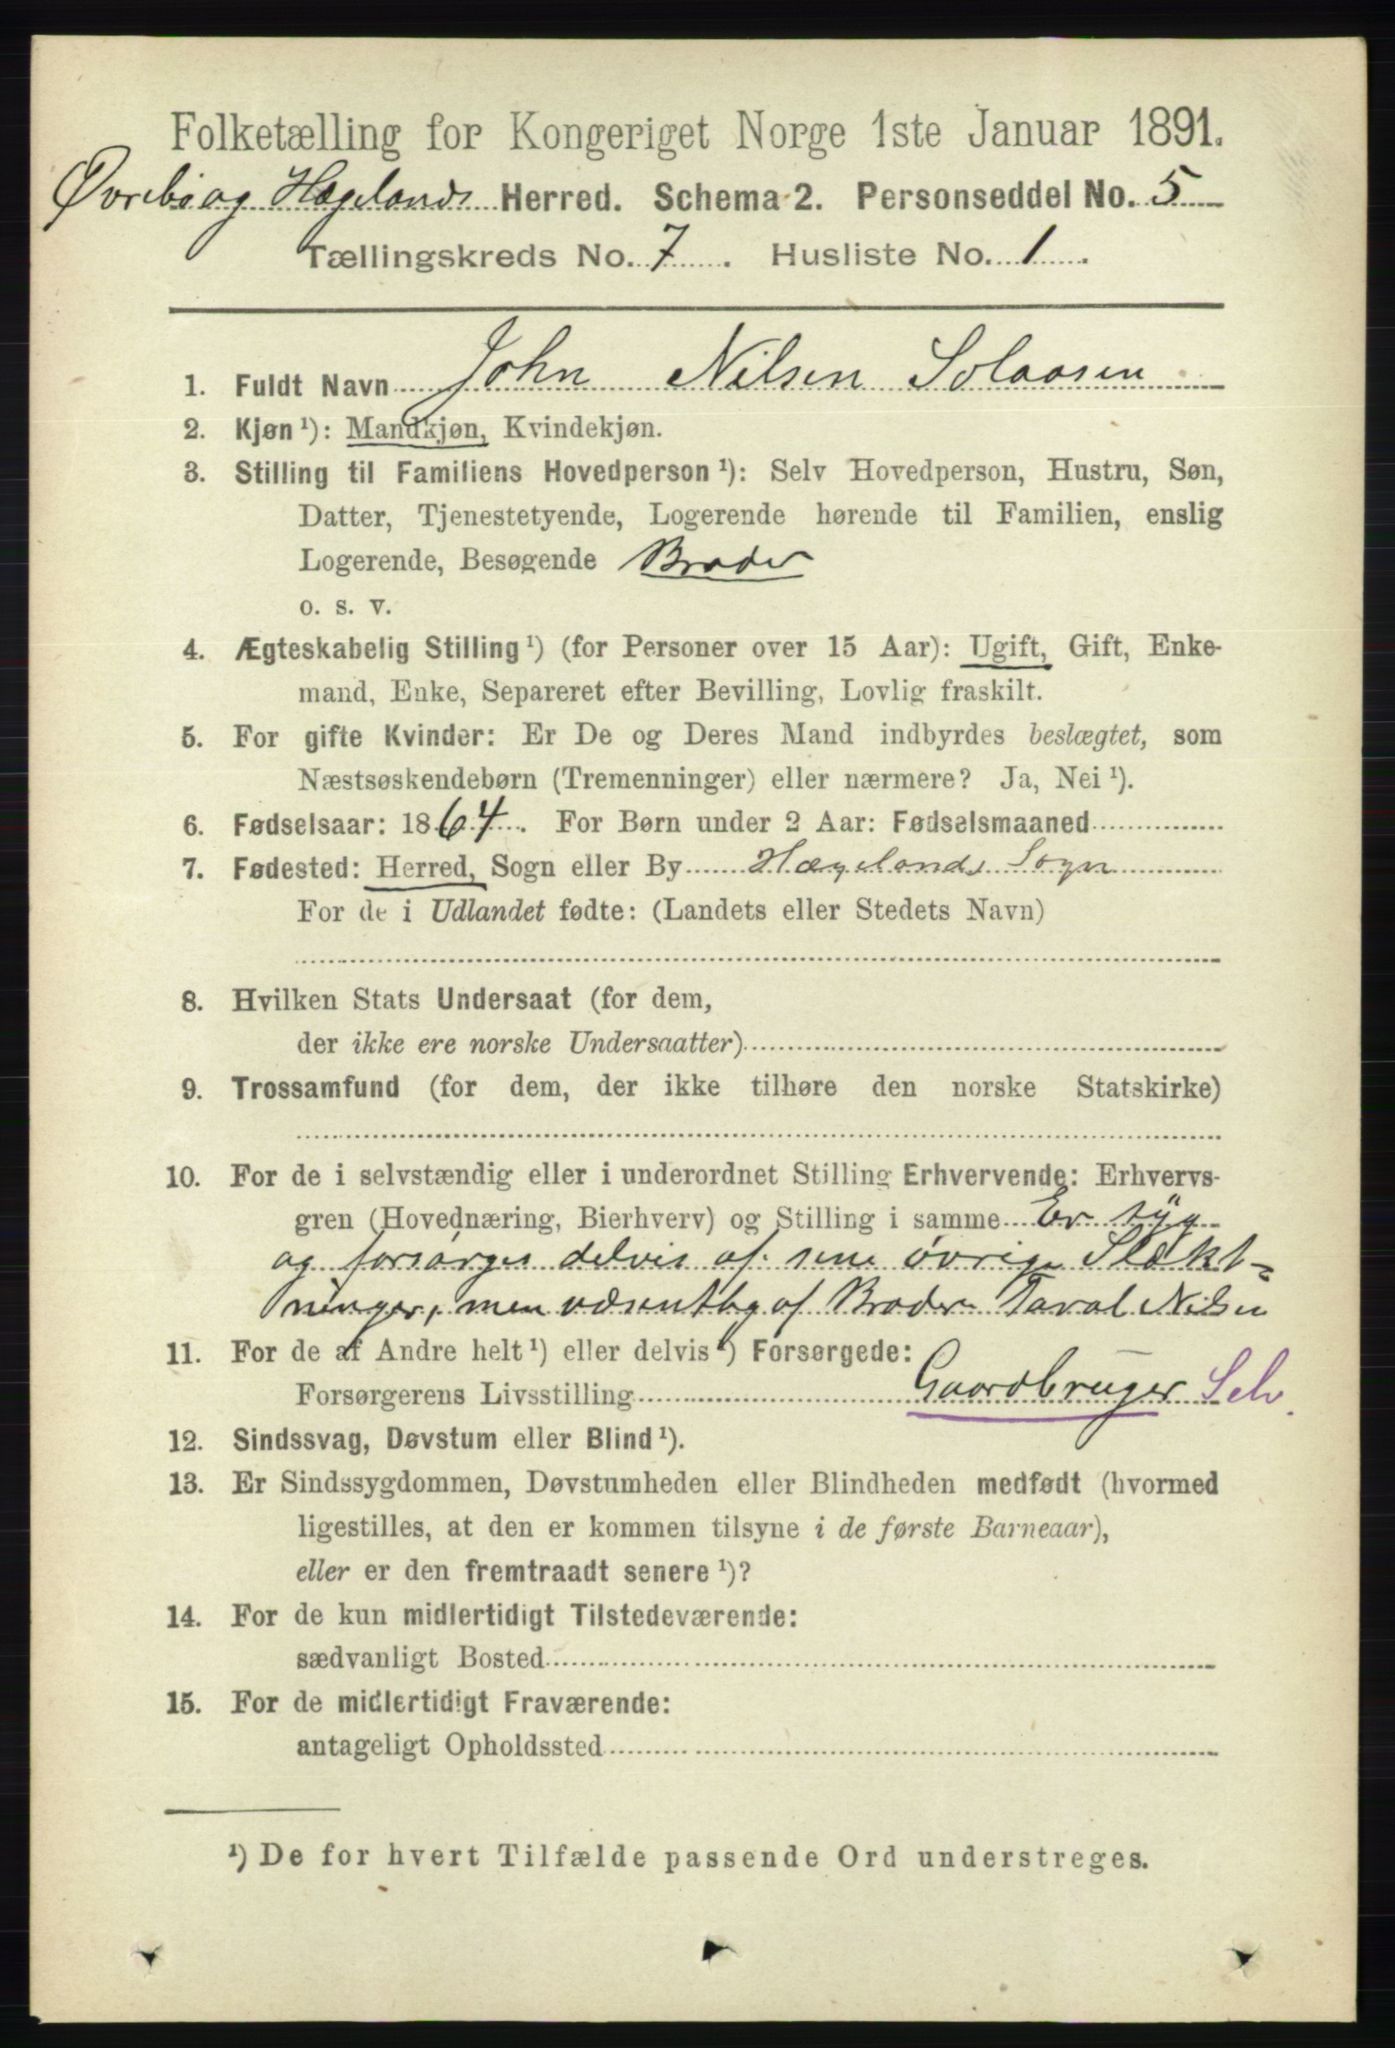 Folketælling for Kongeriget Norge 1ste Januar 1891.
Øvrebø og Hægelands Herred. Schema 2. Personseddel No. 5
Tællingskreds No. 7. Husliste No. 1.
1. Fuldt Navn John Nilsen Solaasen
2. Kjøn ¹): Mandkjøn, Kvindekjøn.
3. Stilling til Familiens Hovedperson ¹): Selv Hovedperson, Hustru, Søn,
Datter, Tjenestetyende, Logerende hørende til Familien, enslig
Logerende, Besøgende Broder
o. s. v.
4. Ægteskabelig Stilling ¹) (for Personer over 15 Aar): Ugift, Gift, Enke-
mand, Enke, Separeret efter Bevilling, Lovlig fraskilt.
5. For gifte Kvinder: Er De og Deres Mand indbyrdes beslægtet, som
Næstsøskendebørn (Tremenninger) eller nærmere? Ja, Nei ¹).
6. Fødselsaar: 1864. For Børn under 2 Aar: Fødselsmaaned
7. Fødested: Herred, Sogn eller By Hægelands Sogn
For de i Udlandet fødte: (Landets eller Stedets Navn)
8. Hvilken Stats Undersaat (for dem,
der ikke ere norske Undersaatter)
9. Trossamfund (for dem, der ikke tilhøre den norske Statskirke)
10. For de i selvstændig eller i underordnet Stilling Erhvervende: Erhvervs-
gren (Hovednæring, Bierhverv) og Stilling i samme Er syg
og forsørges delvis af sine øvrige Slækt-
ninger, men væsentlig af Broder Taral Nilsen
11. For de af Andre helt ¹) eller delvis ¹) Forsørgede:
Forsørgerens Livsstilling Gaardbruger Selv.
12. Sindssvag, Døvstum eller Blind ¹).
13. Er Sindssygdommen, Døvstumheden eller Blindheden medfødt (hvormed
ligestilles, at den er kommen tilsyne i de første Barneaar),
eller er den fremtraadt senere ¹)?
14. For de kun midlertidigt Tilstedeværende:
sædvanligt Bosted
15. For de midlertidigt Fraværende:
antageligt Opholdssted
¹) De for hvert Tilfælde passende Ord understreges.